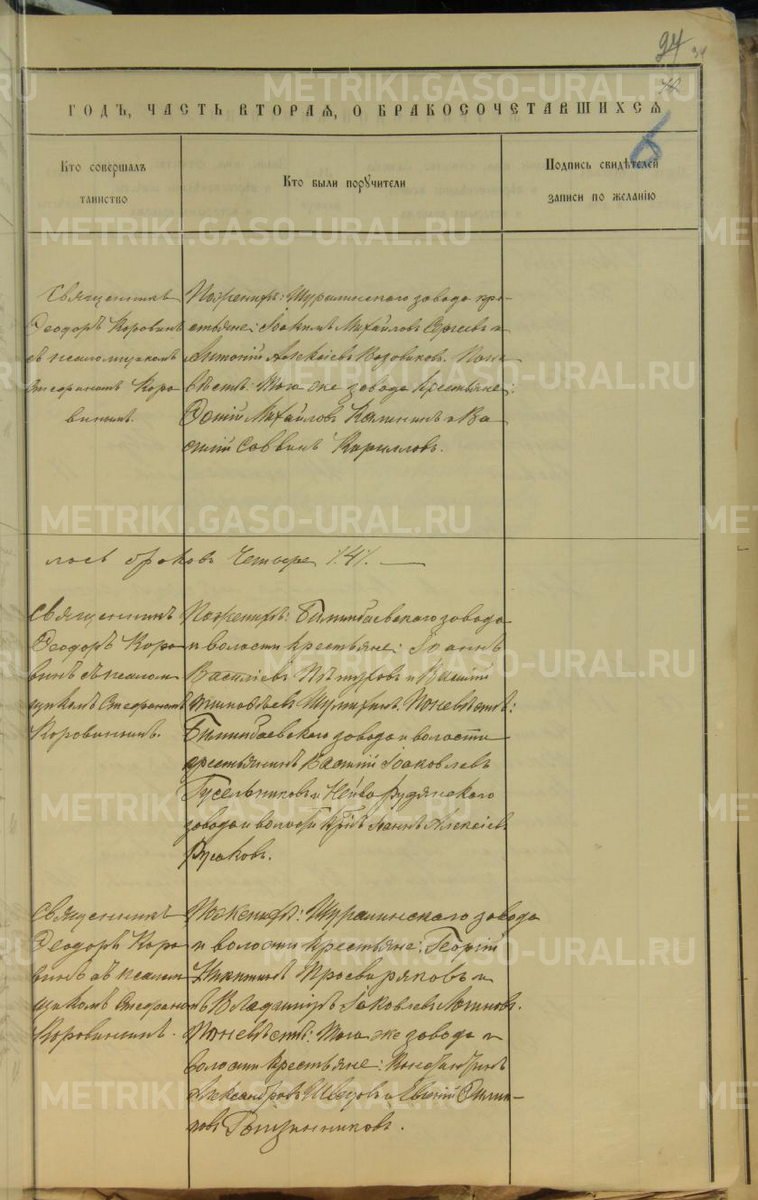 94
METRIKI.GASO-URAL.RU
ГОДЪ, ЧАСТЬ ВТОРАЯ, О БРАКОСОЧЕТАВШИХСЯ
Кто совершалъ таинство
Кто были поручители
Подпись свидѣтелей записи по желанію
Священникъ
Ѳеодоръ Коровинъ
съ псаломщикомъ
Стефаномъ Коро-
винымъ.
По женихѣ: Шуралинскаго завода кре-
стьяне: Іоакимъ Михайловъ Сергѣевъ и
Антоній Алексіевъ Козовиковъ. По не-
вѣстѣ: Того же завода крестьяне:
Михайловъ Калининъ и Ва-
силій Саввинъ Кирилловъ.
лось браковъ четыре /4/.
Священникъ
Ѳеодоръ Коро-
винъ съ псалом-
щикомъ Стефаномъ
Коровинымъ.
По женихѣ: Билимбаевскаго завода
и волости крестьяне: Іоаннъ
Васильевъ Пѣтуховъ и Василій
Шулятинъ. По невѣстѣ:
Билимбаевскаго завода и волости
крестьянинъ Василій Іаковлевъ
Гусельниковъ и Нейво-Рудянскаго
завода и волости Іоаннъ Алексіевъ
Русаковъ.
Священникъ
Ѳеодоръ Коро-
винъ съ псалом-
щикомъ Стефаномъ
Коровинымъ.
По женихѣ: Шуралинскаго завода
и волости крестьяне: Георгій
Никитинъ Просвиряковъ и
Владиміръ Іаковлевъ Логиновъ.
По невѣстѣ: Того же завода и
волости крестьяне: Константинъ
Александровъ Шведовъ и Евгеній Филип-
повъ